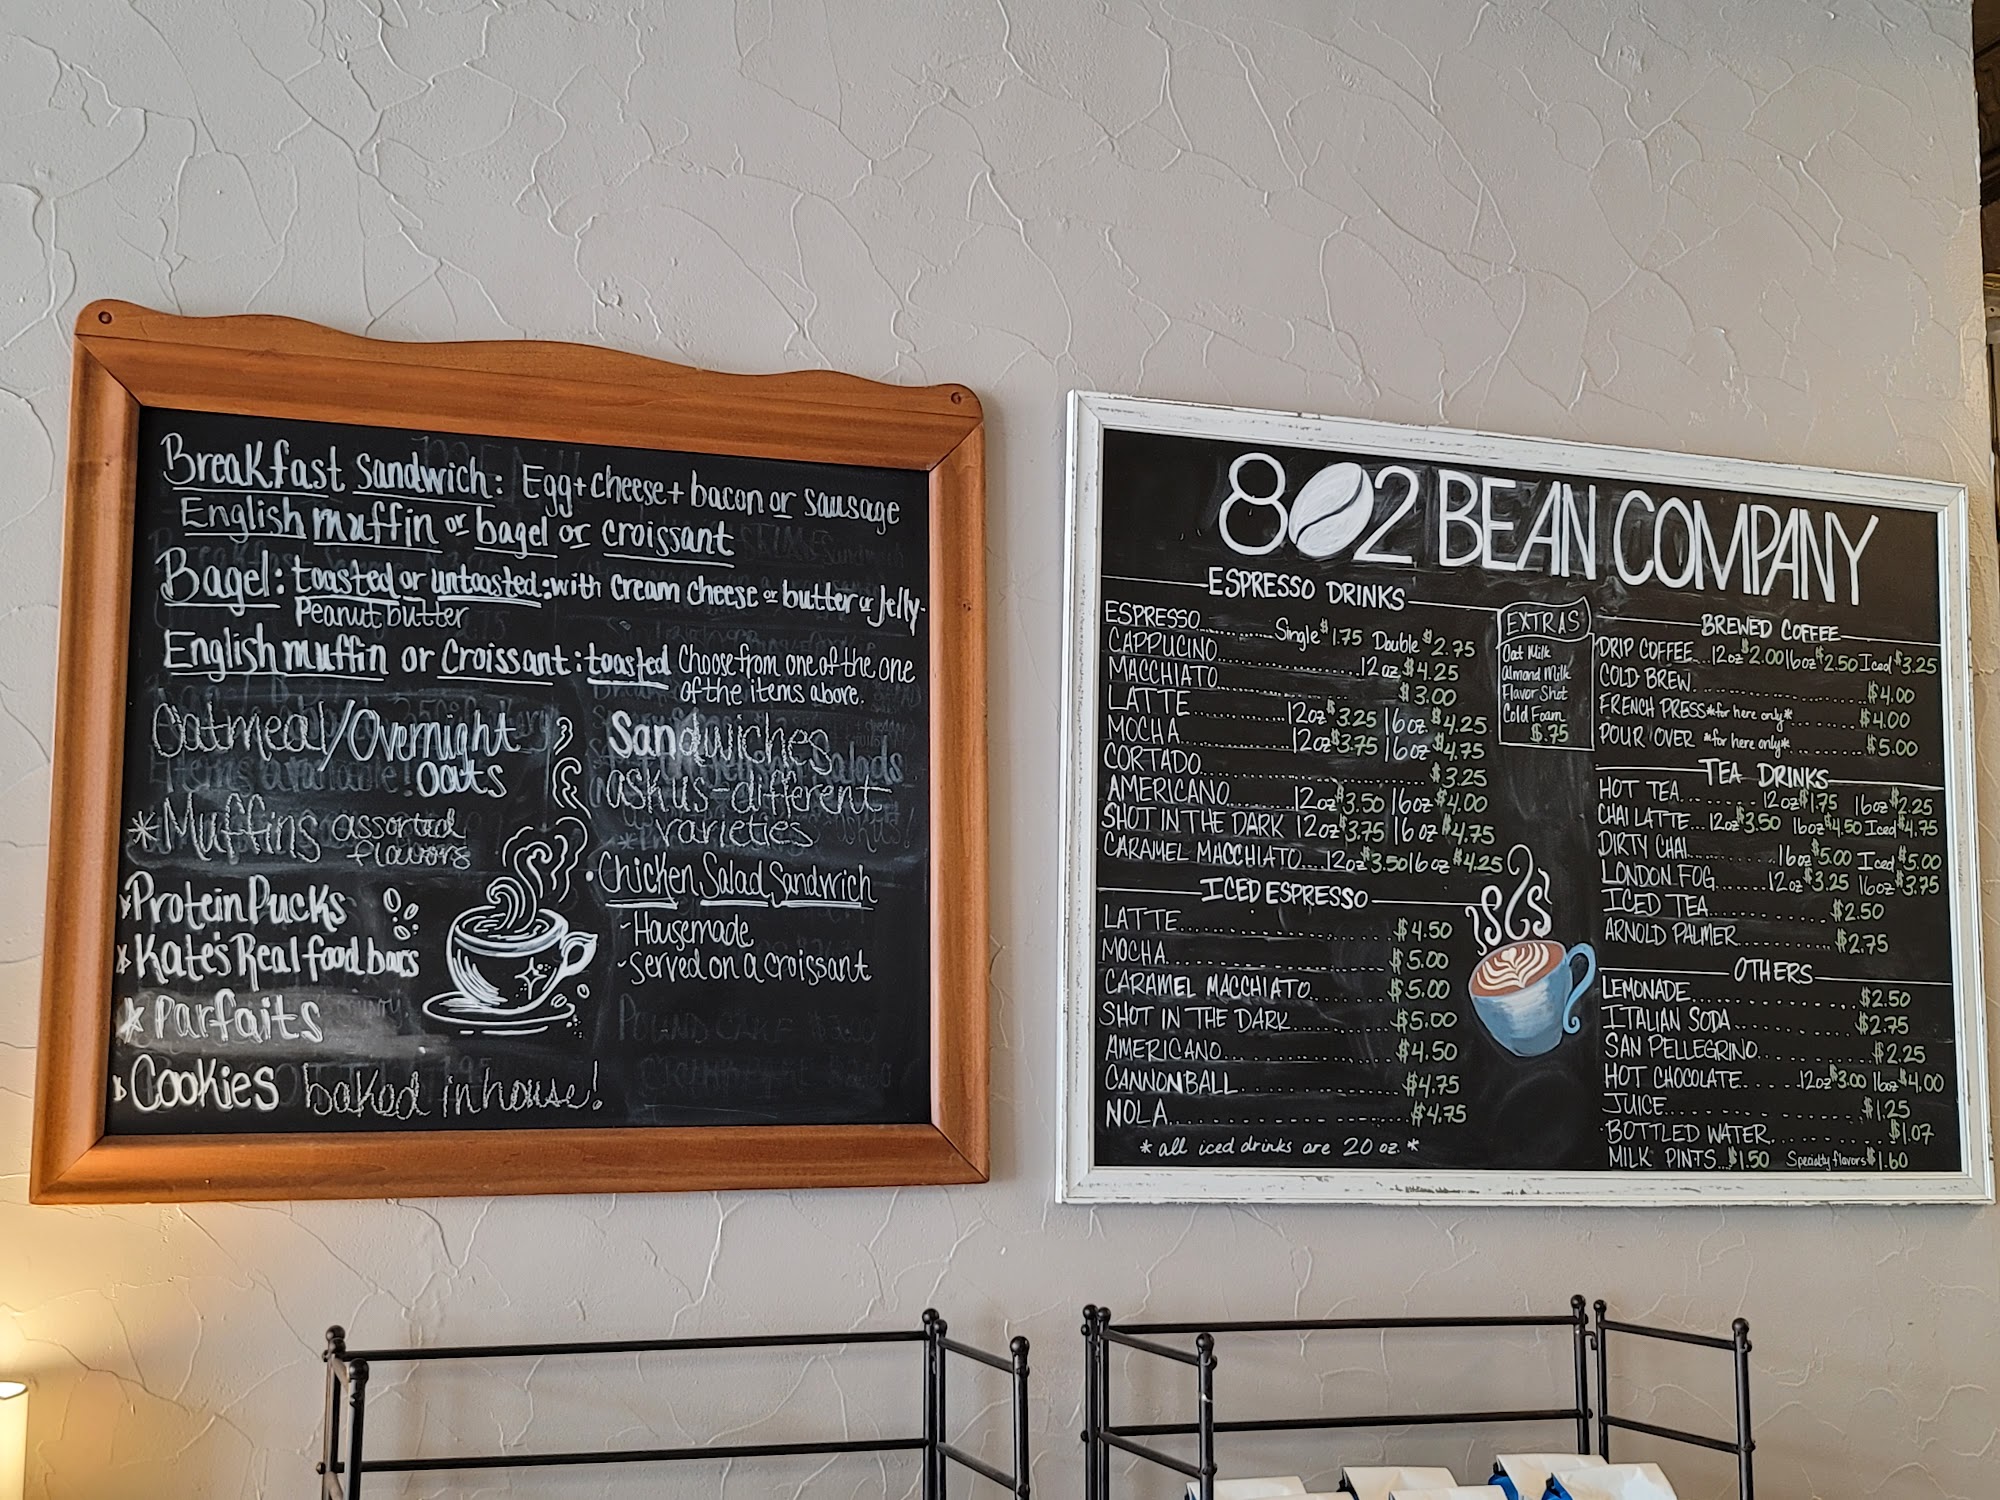 Breakfast Sandwich: Egg + cheese + bacon or sausage
English muffin or bagel or croissant
Bagel: toasted or untoasted: with cream cheese or butter or jelly-
Peanut butter
English muffin or Croissant: toasted Choose from one of the one
of the items above.
Oatmeal/Overnight
Oats
*Muffins assorted
flavors
Protein Pucks
*Kate's Real food bars
*Parfaits
Cookies baked in house!
Sandwiches
ask us-different
varieties
•Chicken Salad Sandwich
-Housemade
-served on a croissant
802 BEAN COMPANY
ESPRESSO DRINKS
ESPRESSO Single $1.75 Double $2.75
CAPPUCINO 12oz $4.25
MACCHIATO $3.00
LATTE 12oz $3.25 16oz $4.25
MOCHA 12oz $3.75 16oz $4.75
CORTADO $3.25
AMERICANO 12oz $3.50 16oz $4.00
SHOT IN THE DARK 12oz $3.75 16oz $4.75
CARAMEL MACCHIATO 12oz $3.50 16oz $4.25
ICED ESPRESSO
LATTE $4.50
MOCHA $5.00
CARAMEL MACCHIATO $5.00
SHOT IN THE DARK $5.00
AMERICANO $4.50
CANNONBALL $4.75
NOLA $4.75
*all iced drinks are 20 oz.*
EXTRAS
Oat Milk
Almond Milk
Flavor Shot
Cold Foam
$.75
BREWED COFFEE
DRIP COFFEE 12oz $2.00 16oz $2.50 Iced $3.25
COLD BREW $4.00
FRENCH PRESS *for here only* $4.00
POUR OVER *for here only* $5.00
TEA DRINKS
HOT TEA 12oz $1.75 16oz $2.25
CHAI LATTE 12oz $3.50 16oz $4.50 Iced $4.75
DIRTY CHAI 16oz $5.00 Iced $5.00
LONDON FOG 12oz $3.25 16oz $3.75
ICED TEA $2.50
ARNOLD PALMER $2.75
OTHERS
LEMONADE $2.50
ITALIAN SODA $2.75
SAN PELLEGRINO $2.25
HOT CHOCOLATE 12oz $3.00 16oz $4.00
JUICE $1.25
BOTTLED WATER $1.07
MILK PINTS $1.50 Specialty flavors $1.60